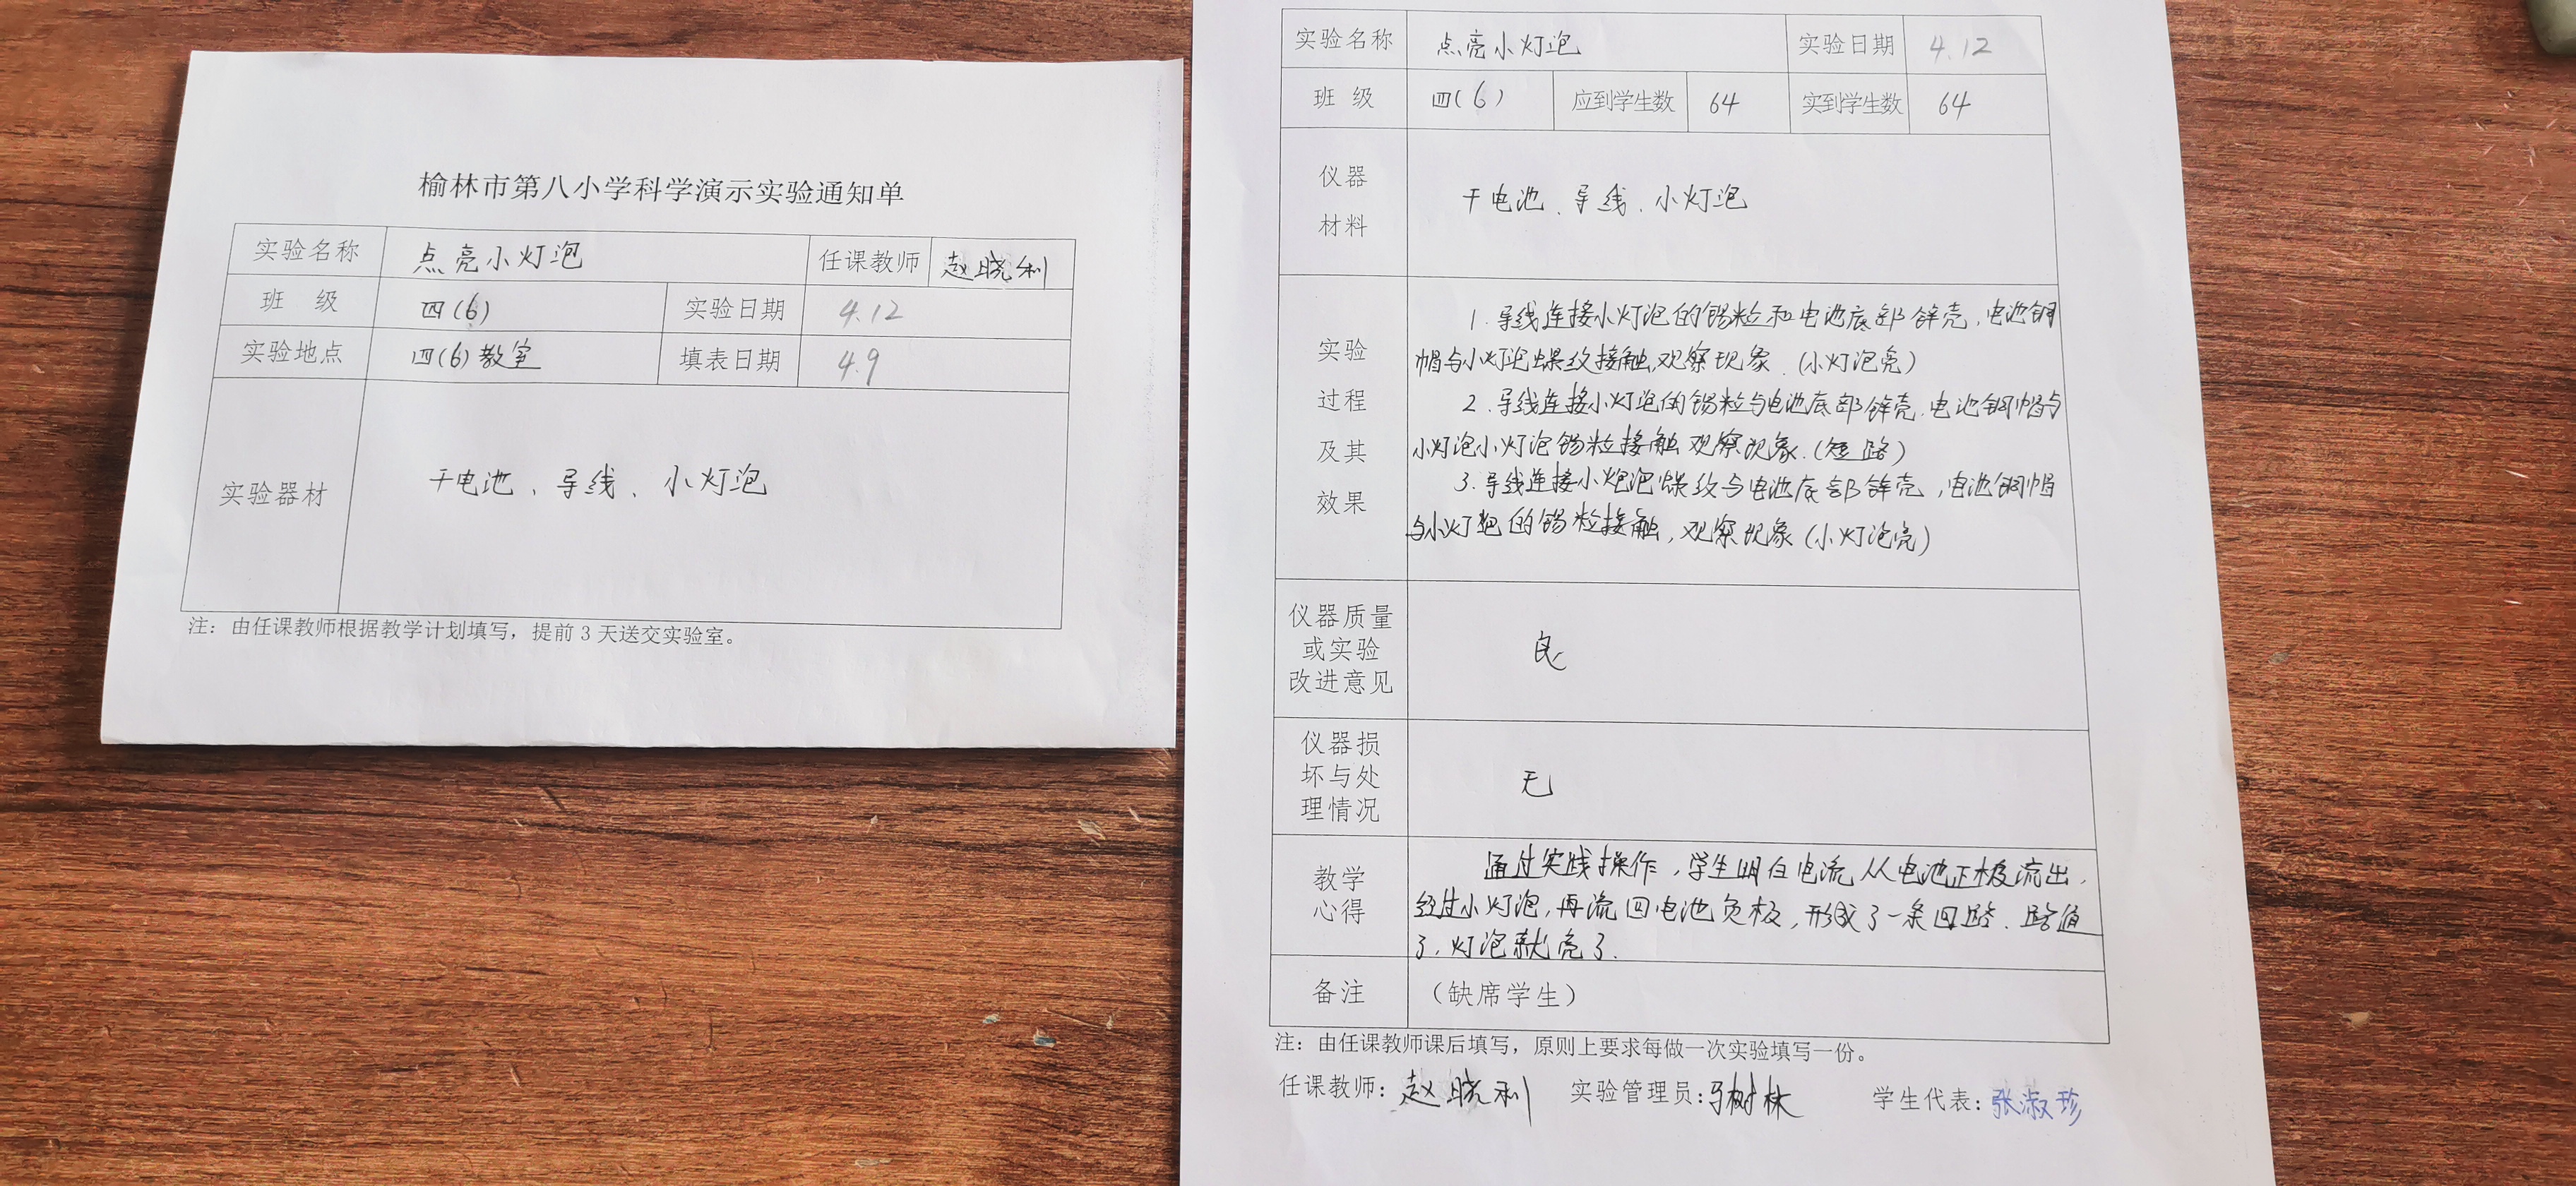 榆林市第八小学科学演示实验通知单
实验名称 点亮小灯泡 任课教师 赵晓利
班 级 四(6) 实验日期 4.12
实验地点 四(6)教室 填表日期 4.9
实验器材 干电池、导线、小灯泡
注：由任课教师根据教学计划填写，提前 3 天送交实验室。
实验名称 点亮小灯泡 实验日期 4.12
班 级 四(6) 应到学生数 64 实到学生数 64
仪器材料 干电池、导线、小灯泡
实验过程及其效果
1.导线连接小灯泡的锡粒和电池底部锌壳，电池铜
帽与小灯泡螺纹接触，观察现象.(小灯泡亮)
2.导线连接小灯泡的锡粒与电池底部锌壳，电池铜帽与
小灯泡小灯泡锡粒接触 观察现象.(短路)
3.导线连接小炮泡螺纹与电池底部锌壳，电池铜帽
与小灯的锡粒接触，观察现象(小灯泡亮)
仪器质量或实验改进意见 良
仪器损坏与处理情况 无
教学心得
通过实践操作，学生明白电流从电池正极流出，
经过小灯泡，再流回电池负极，形成了一条回路.路通
了，灯泡就亮了.
备注 （缺席学生）
注：由任课教师课后填写，原则上要求每做一次实验填写一份。
任课教师：赵晓利 实验管理员：马树林 学生代表：张淑珍